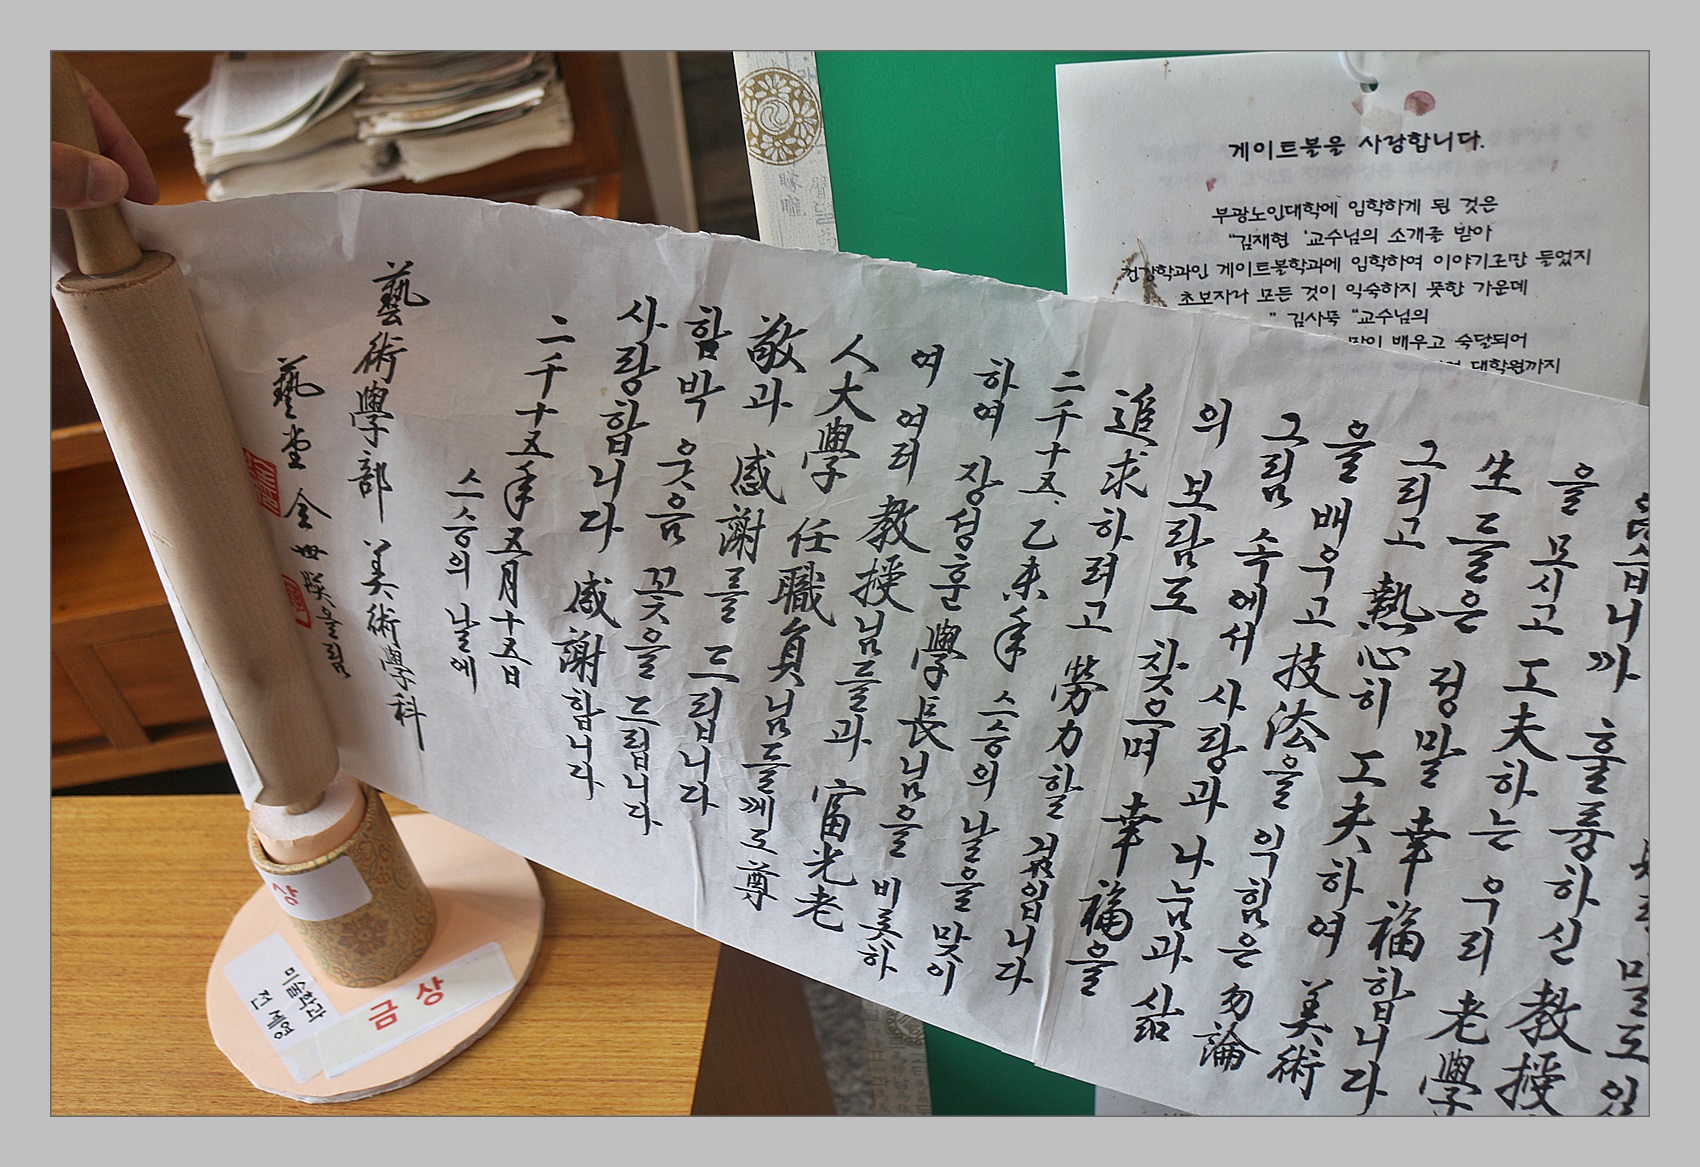 게이트볼을 사랑합니다.
부광노인대학에 입학하게 된 것은
"김재현 '교수님의 소개를 받아
건강학과인 게이트볼학과에 입학하여 이야기로만 들었지
초보자라 모든 것이 익숙하지 못한 가운데
" 김사묵 "교수님의
많이 배우고 숙달되어
대학원까지
말도 있
습니까 훌륭하신 教授
을 모시고 工夫하는 우리 老學
生들은 정말 幸福합니다
그리고 熱心히 工夫하여 美術
을 배우고 技法을 익힘은 勿論
그림 속에서 사랑과 나눔과 삶
의 보람도 찾으며 幸福을
追求하려고 勞力할 것입니다
二千十五. 乙未年 스승의 날을 맞이
하여 장성훈 學長님을 비롯하
여 여러 教授님들과 富光老
人大學 任職員님들께도 尊
敬과 感謝를 드립니다
함박 웃음 꽃을 드립니다
사랑합니다 感謝합니다
二千十五年 五月十五日
스승의 날에
藝術學部 美術學科
藝堂 金世 올림
상
금상
미술학과
전 세영